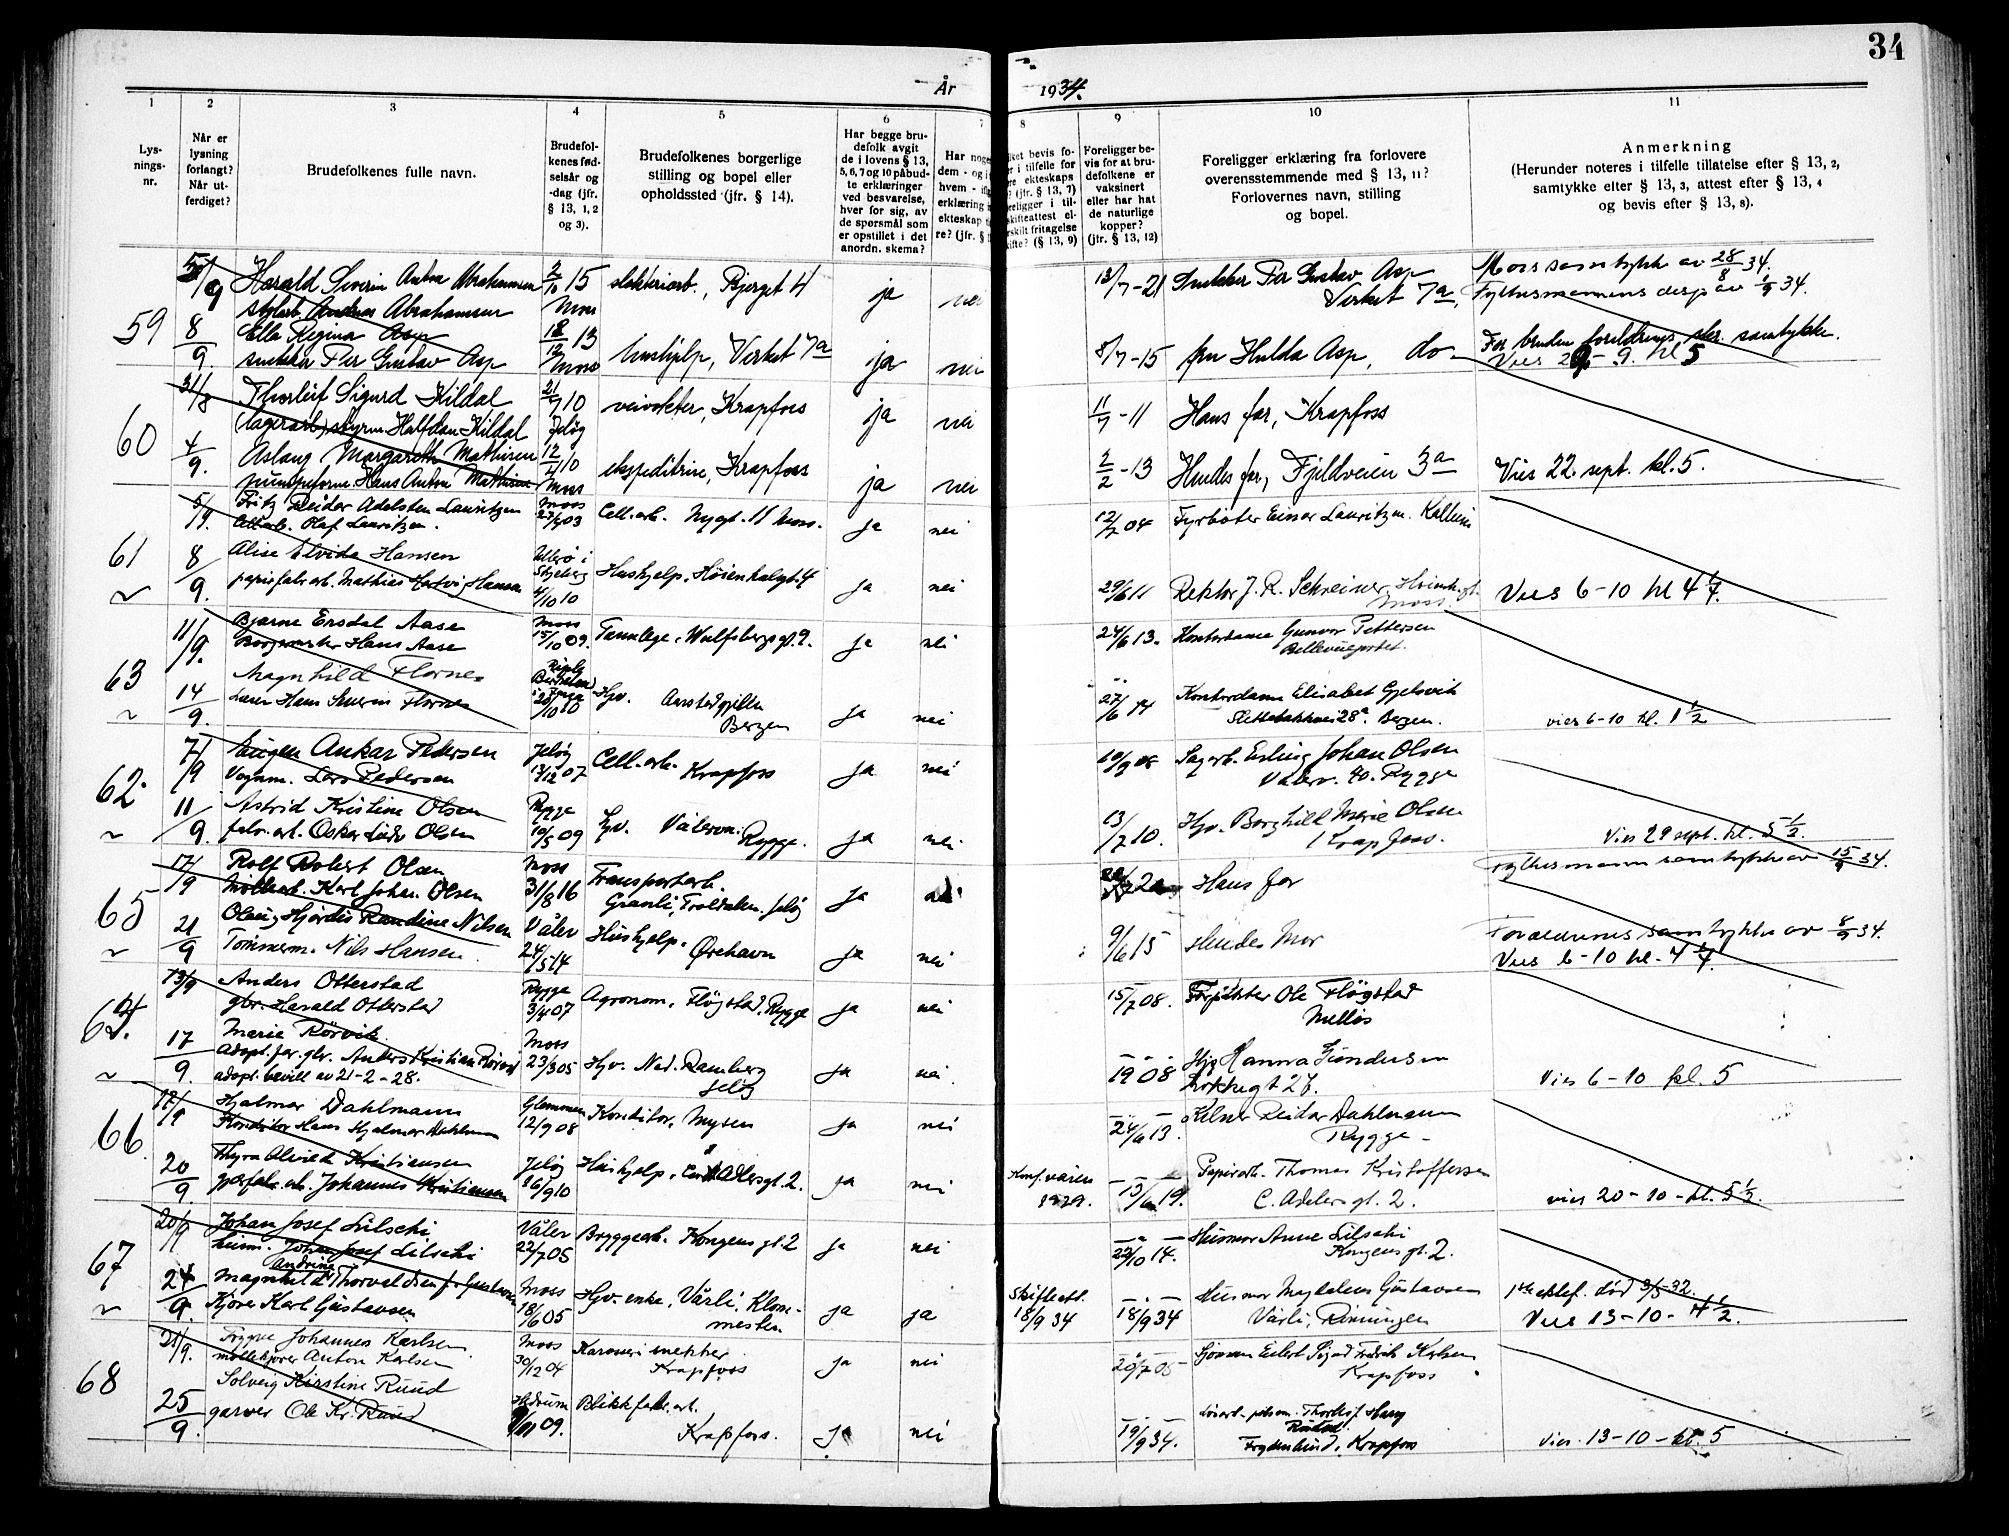 34
År 1934.
1 2 3 4 5 6 7 8 9 10 11
Lys-
nings-
nr.
Når er
lysning
forlangt?
Når ut-
ferdiget?
Brudefolkenes fulle navn.
Brudefol-
kenes fød-
selsår og
-dag (jfr.
§ 13, 1, 2
og 3).
Brudefolkenes borgerlige
stilling og bopel eller
opholdssted (jfr. § 14).
Har begge bru-
defolk avgit
de i lovens § 13,
5, 6, 7 og 10 påbud-
te erklæringer
ved besvarelse,
hver for sig, av
de spørsmål som
er opstillet i det
anordn. skema?
Har noge
dem - og i
hvem - if
erklæring
ekteskap
re? (jfr. §
ket bevis fo-
r i tilfelle for
re ekteskaps
? (jfr. § 13, 7)
religger i til-
skifteattest el-
rskilt fritagelse
kifte? (§ 13, 9)
Foreligger be-
vis for at bru-
defolkene er
vaksinert
eller har hat
de naturlige
kopper?
(jfr. § 13, 12)
Foreligger erklæring fra forlovere
overensstemmende med § 13, 11?
Forlovernes navn, stilling
og bopel.
Anmerkning
(Herunder noteres i tilfelle tillatelse efter § 13, 2,
samtykke efter § 13, 3, attest efter § 13, 4
og bevis efter § 13, 8).
59
Harald Severin Anton Abrahamsen 2/10 15 slakteriarb., Bjerget 4 ja nei 13/7-21 Snekker Per Gustav Asp Mors samtykke av 28/8 34.
Andreas Abrahamsen Moss Verket 7a Fylkesmannens disp av 1/9 34.
8/9. Ella Regina Asp 18/12 13 For bruden foreldrenes skr. samtykke.
snekker Per Gustav Asp Moss hushjelp, Verket 7a ja nei 8/7-15 fru Hulda Asp, do Vies 29-9. kl 5
60
31/8 Thorleif Sigurd Kildal 21/7 10 veivokter, Krapfoss ja nei 11/7-11 Hans far, Krapfoss
(lagerarb) styrm. Halfdan Kildal Jeløy
4/9. Aslaug Margareth Mathisen 12/4 10 ekspeditrise, Krapfoss ja nei 2/2-13 Hendes far, Fjeldveien 3a Vies 22. sept. kl. 5.
Hans Anton Mathisen Moss
61
5/9. Fritz Reidar Adelsten Lauritzen Moss
Cell.arb. Olaf Lauritzen. 27/4 03 Cell.arb. Nygt. 11 Moss. ja nei 12/7 04 Fyrbøter Einar Lauritzen. Kallum
8/9. Alise Elvida Hansen Ullerø i Skjeberg Hushjelp. Høienhalgt. 4 ja nei 29/6 11 Rektor J. R. Schreiner, Moss. Vies 6-10 kl 4 1/4.
papirfabarb. Mathias Hartvig Hansen 4/10 10
63
11/9. Bjarne Ersdal Aase Moss
Hans Aase 15/10 09. Tannlege, Wulfsbergs gt. 9. ja nei 24/6 13. Kontordame Gunvor Pettersen
Bellevuegodset.
14/9. Magnhild Flornes
Lærer Hans Severin Flornes 20/10 10 Hjv. Bergen ja nei 27/6 14 Kontordame Elisabet Gjelsvik
28a. Bergen. vies 6-10 kl. 1 1/2
62.
7/9 Eugen Ankar Pedersen Jeløy
Vognm. Lars Pedersen 13/12 07 Cell.arb. Krapfoss ja nei 10/9 08 Sagarb. Erling Johan Olsen
Vålerv. 40. Rygge
11/9. Astrid Kristine Olsen Rygge
fabr.arb. Oskar Ludv Olsen 10/5 09 Hjv. Vålervn. Rygge. ja nei 13/7 10. Hjv. Borghild Marie Olsen
Krapfoss. Vies 29 sept. kl. 5 1/2.
65
17/9 Rolf Robert Olsen Moss
Møllearb. Karl Johan Olsen 31/8 16 Transportarb. Granli, Troldalen, Jeløy ja nei Hans far Fylkesmann samtykke av 15/9 34.
21/9 Olaug Hjørdis Randine Nilsen Våler
Tømmerm. Nils Hansen 24/5 14 Hushjelp. Ørehavn ja nei 9/6 15 Hendes Mor Foreldrenes samtykke av 8/9 34.
Vies 6-10 kl. 4 1/4.
64.
13/9 Anders Otterstad Rygge
gbr. Harald Otterstad 3/4 07 Agronom. Fløgstad, Rygge ja nei 15/7 08. Forpakter Ole Fløgstad
Melløs
17/9. Marie Rørvik Moss
Adopt. far. gbr. Anders Kristian Rørvik 23/3 05 Hjv. Ned. Ramberg Jeløy ja nei 19 08 Hjv Hanna Gundersen
adopt. bevill av 21-2-28. Lokkegt 27. Vies 6-10 kl. 5
66.
17/9 Hjalmar Dahlmann Glemmen
Konditor Hans Hjalmar Dahlmann 12/9 08 Konditor, Mysen ja nei 24/6 13. Kelner Reidar Dahlmann
Rygge
20/9 Thyra Alvild Kristiansen Jeløy
Johannes Kristiansen 16/9 10 Hushjelp, C. Adlersgt. 2. ja nei Konf. våren 1929. 13/6 19. Papirarb. Thomas Kristoffersen
C. Adelersgt. 2. vies 20-10-kl. 5 1/2.
67
20/9 Johan Josef Lilschi Våler
Johan Josef Lilschi 22/7 05 Bryggearb. Kongens gt. 2 ja nei 22/10 14. Husmor Anne Lilschi
Kongens gt. 2.
24/9. Magnhild Andrine Thorvaldsen f. Gustavsen Moss
Kjører Karl Gustavsen 18/6 05 Hjv. enke, Vårli, ja ja Skifteatt. 18/9 34 18/9 34 Husmor Magdalene Gustavsen
Vårli, 1ste ektef. død 3/5-32.
Vies 13-10- 4 1/2.
68
21/9. Trygve Johannes Karlsen Moss
møllekjører Anton Karlsen 30/12 04 Karosserisnekker Krapfoss ja nei 20/7 05 Sjømann Eilert Sigurd Fredrik Karlsen
Krapfoss
25/9. Solveig Kirstine Ruud Hedrum
garver Ole Kr. Ruud. 9/11 09. Blikkfabr.arb. Krapfoss. ja nei 19/9 34. Thorleif Harry Rustad
Frydenlund, Krapfoss Vies 13-10-kl. 5